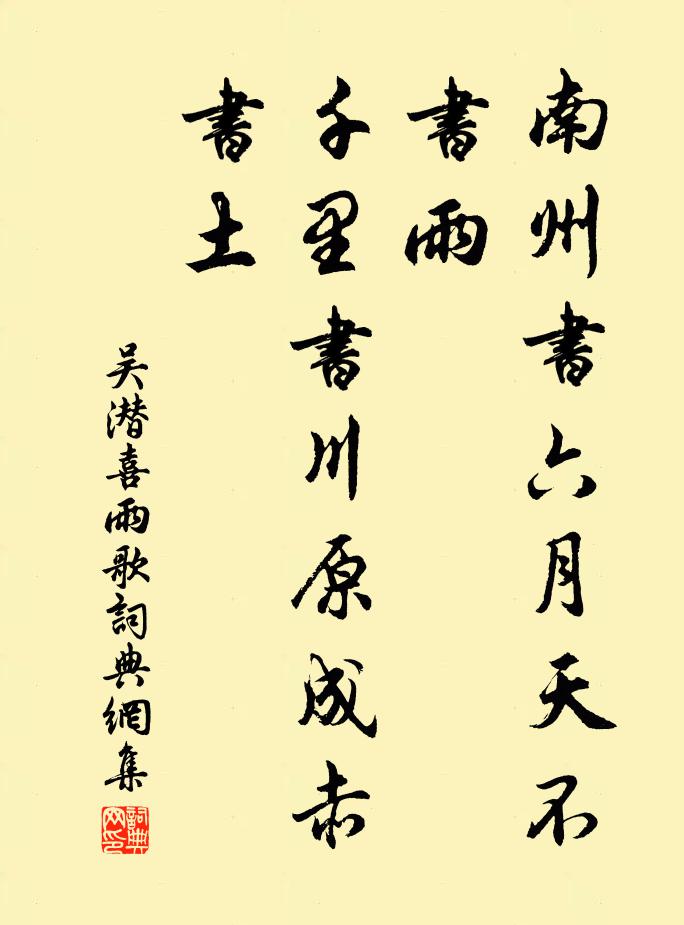 南州書六月天不
書雨
千里書川原成赤
書土
吴潜喜雨歌詞典網集
詞典網印